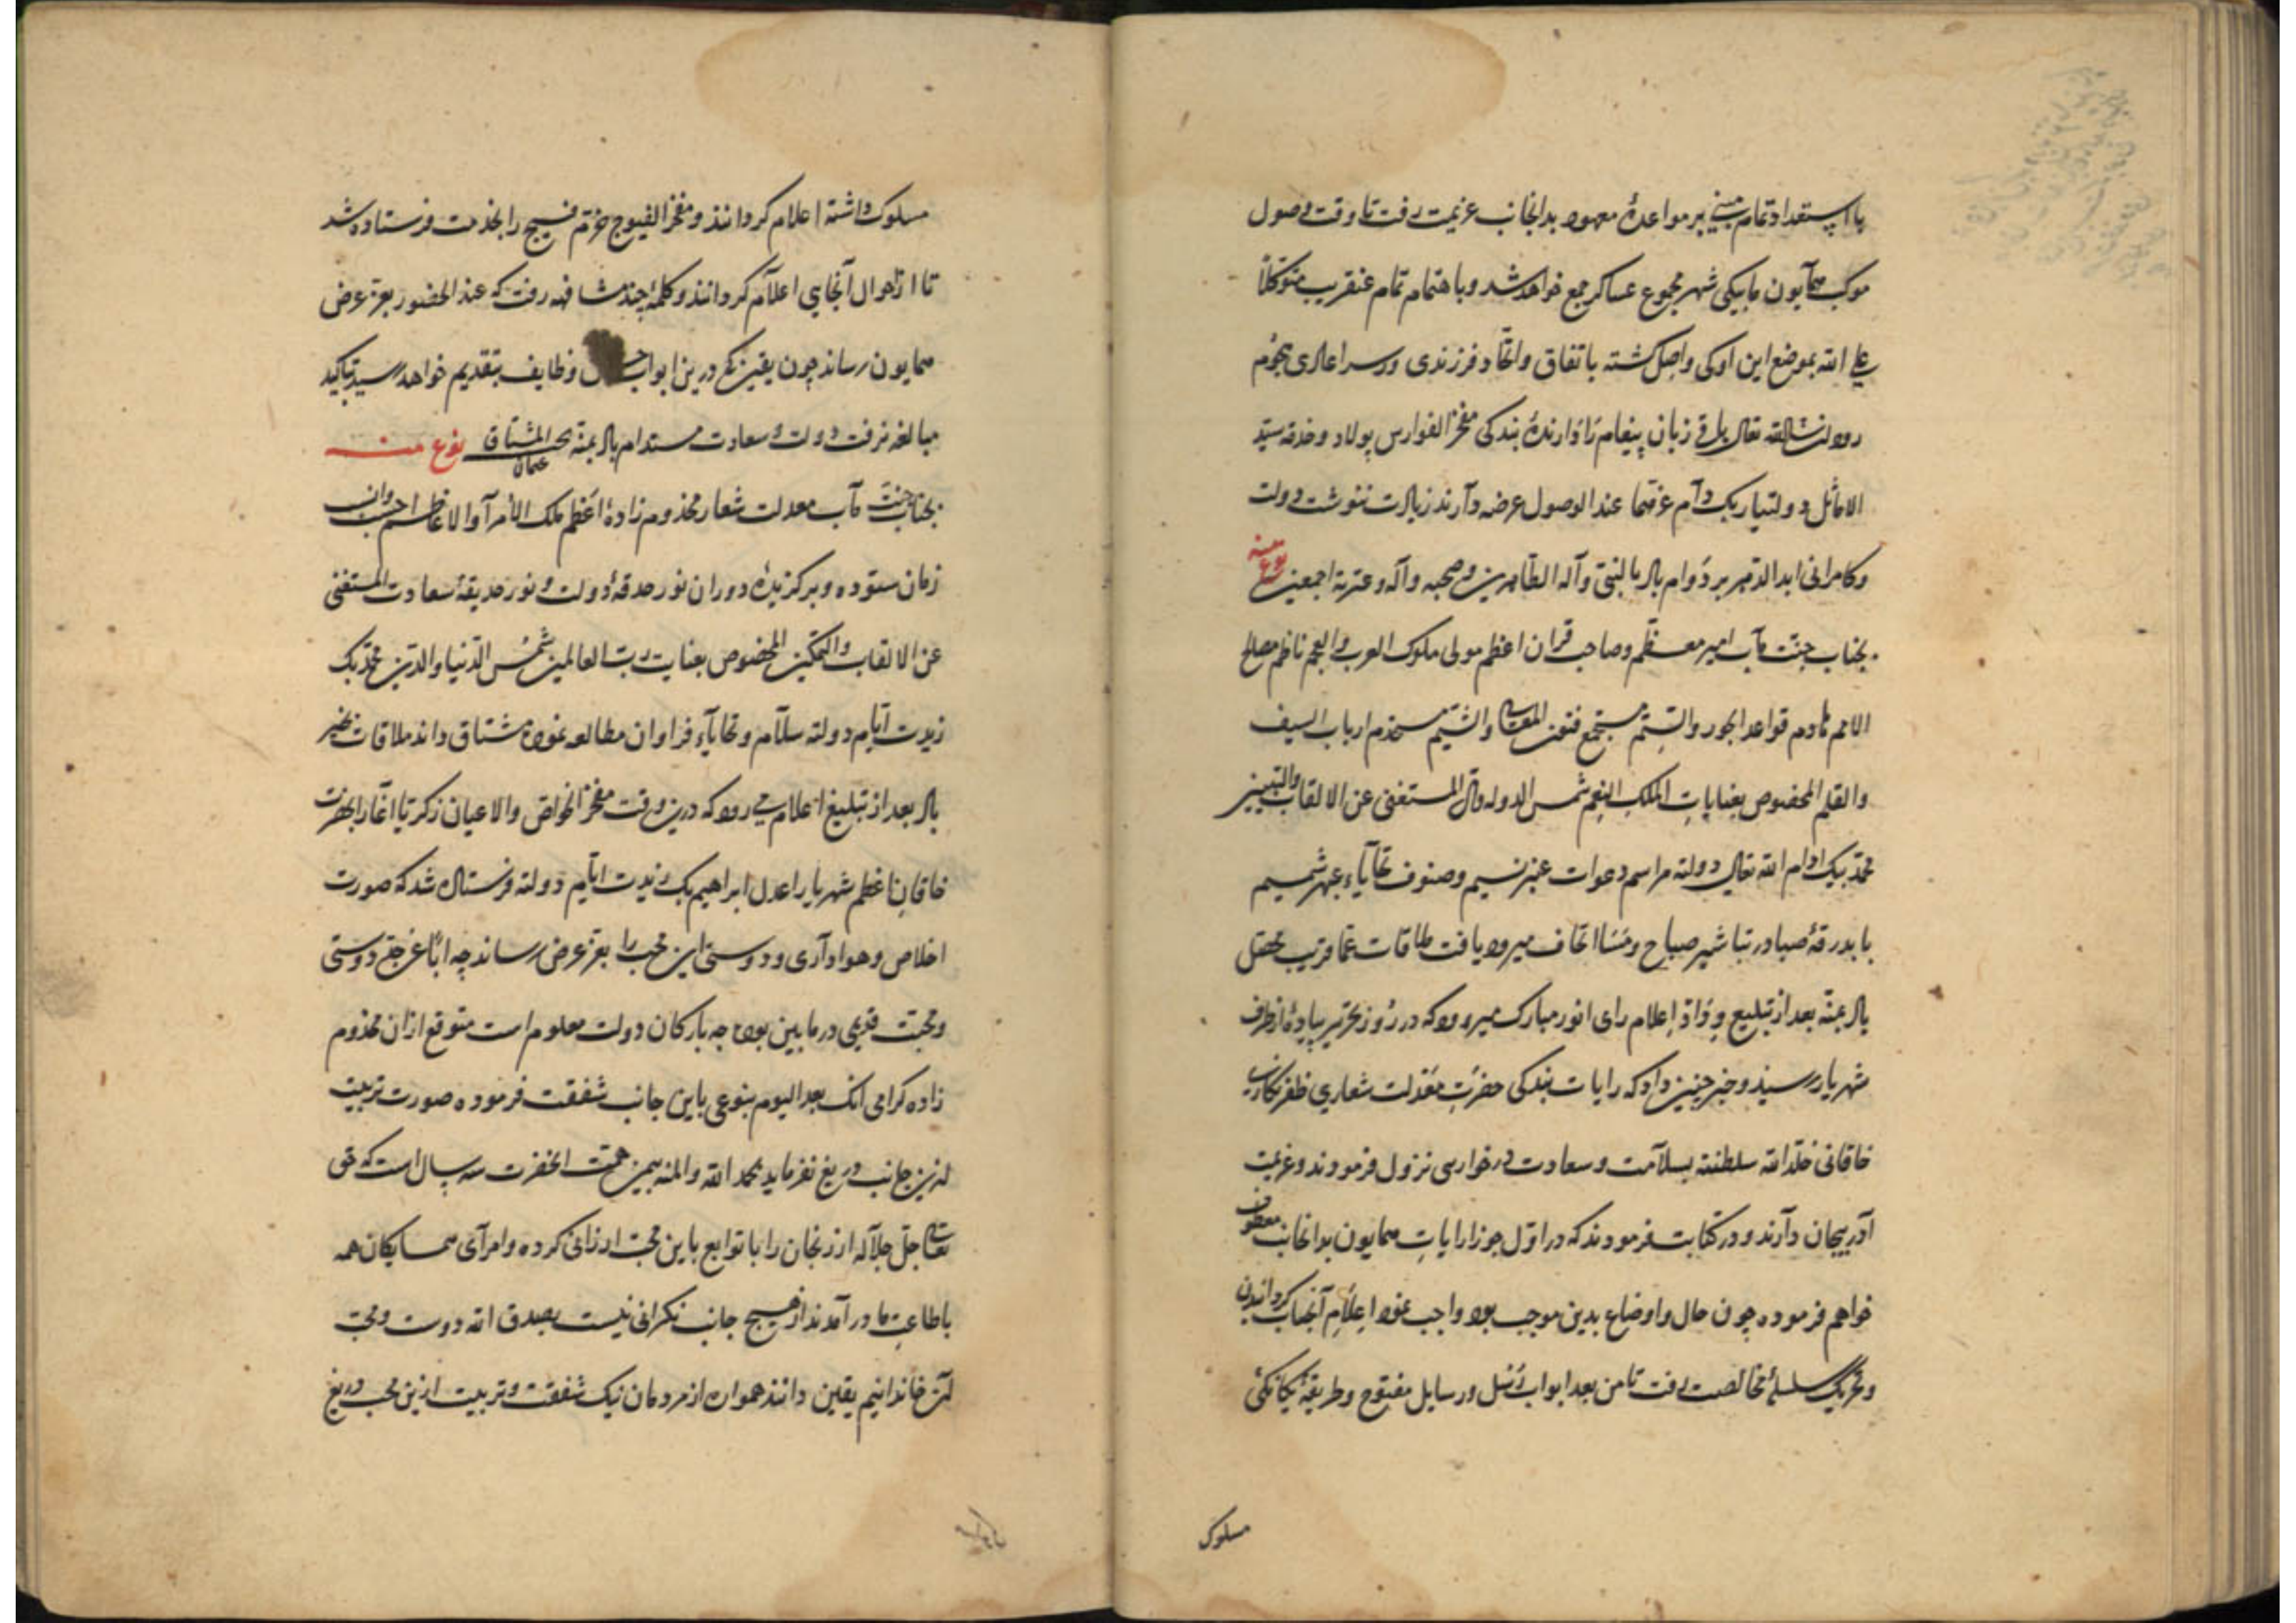 با استعداد تمام مبنی بر مواعدهٔ معهود بدانجانب عزیمت رفت تا وقت وصول
موکب همآیون مابیکی شهر مجموع عساکر جمع خواهد شد و باهتمام تمام عنقریب متوکلاً
علی الله بموضع این اوکی واصل کشته باتفاق و اتحاد فرزندی و در سر اعادی هجوم
رود ان شاالله تعالی باقی زبان پیغام را دارندهٔ بندکی مفخر الفوارس پولاد و خدمه سید
الاماثل دولتیار بک دام عزهما عند الوصول عرضه دآرند زیادت ننوشت دولت
و کامرانی ابد الدهر بر دوام باد بالنبی وآله الطاهرین و صحبه وآله وعترته اجمعین نوع منه
بجناب جنت مآب امیر معظم و صاحب قران اعظم مولی ملوک العرب والعجم ناظم مصالح
الامم هادم قواعد الجور والستم مستجمع فنون المعالی والشیم مستخدم ارباب السیف
والقلم المخصوص بعنایات الملک المنعم شمس الدوله و المستغنی عن الالقاب والتبیین
محمد بیک ادام الله تعالی دولته مراسم دعوات عنبر نسیم و صنوف تحایآء عبهر شمیم
با بدرقهٔ صبا در تباشیر صباح و مسا اتحاف میرود یافت ملاقات عما قریب محصل
باد بمنه بعد از تبلیغ وداد اعلام رای انور مبارک میرود که در روز تحریر پیادهٔ از طرف
شهریار رسید و خبر چنین داد که رایات بندکی حضرت معدلت شعاری ظفر نکاری
خاقانی خلد الله سلطنته بسلآمت و سعادت در خوار ری نزول فرمودند و عزیمت
آذربیجان دآرند و در کتابت فرمودند که در اول جوزا رایات همایون بدانجانب معطوف
خواهم فرموده چون حال و اوضاع بدین موجب بود واجب نمود اعلام آنجناب کردانیدن
و تحریک سلسلهٔ مخالصت رفت تا من بعد ابواب رسل و رسایل مفتوح و طریقهٔ یکانکی
مسلوک
مسلوک داشته اعلام کردانند و مفخر الفیوج خرم فیج را بخدمت فرستاده شد
تا از احوال آنجایی اعلآم کردانند و کلمهٔ چند مشافهه رفت که عند الحضور بعز عرض
همایون رساند چون یقین که درین ابواب وظایف بتقدیم خواهد رسید بتاکید
مبالغه نرفت دولت و سعادت مستدام باد بمنه المشتاق عثمان نوع منه
بجناب جنت مآب معدلت شعار مخدوم زادهٔ اعظم ملک الأمرآ والاعاظم
زمان ستوده و برکزیدهٔ دوران نور حدقهٔ دولت و نور حدیقهٔ سعادت المستغنی
عن الالقاب والتمکین المخصوص بعنایت رب العالمین شمس الدنیا والدین محمد بک
زیدت ایام دولته سلآم و تحایآء فراوان مطالعه نموده مشتاق داند ملاقات بخیر
باد بعد از تبلیغ اعلام می رود که درین وقت مفخر الخواص والاعیان زکریا اغا را بحضرت
خاقان اعظم شهریار اعدل ابراهیم بک زیدت ایام دولته فرستاده شد که صورت
اخلاص و هوادآری و دوستی این محب را بعز عرض رساند چه اباً عن جد دوستی
و محبت قدیمی در ما بین بوده چه بارکان دولت معلوم است متوقع از آن مخدوم
زاده کرامی انک بعد الیوم بنوعی باین جانب شفقت فرموده صورت تربیت
ازین جانب دریغ نفرماید بحمد الله والمنه بیمن همت انحضرت سه سال است که حق
تعالی جل جلآله ارزنجان را با توابع باین محب ارزانی کرده و امرآی همسایکان همه
باطاعت ما در آمدند از هیچ جانب نکرانی نیست بصدق الله دوست و محب
آن خاندانیم یقین دانند همواره از مردمان نیک شفقت و تربیت ازین محب دریغ